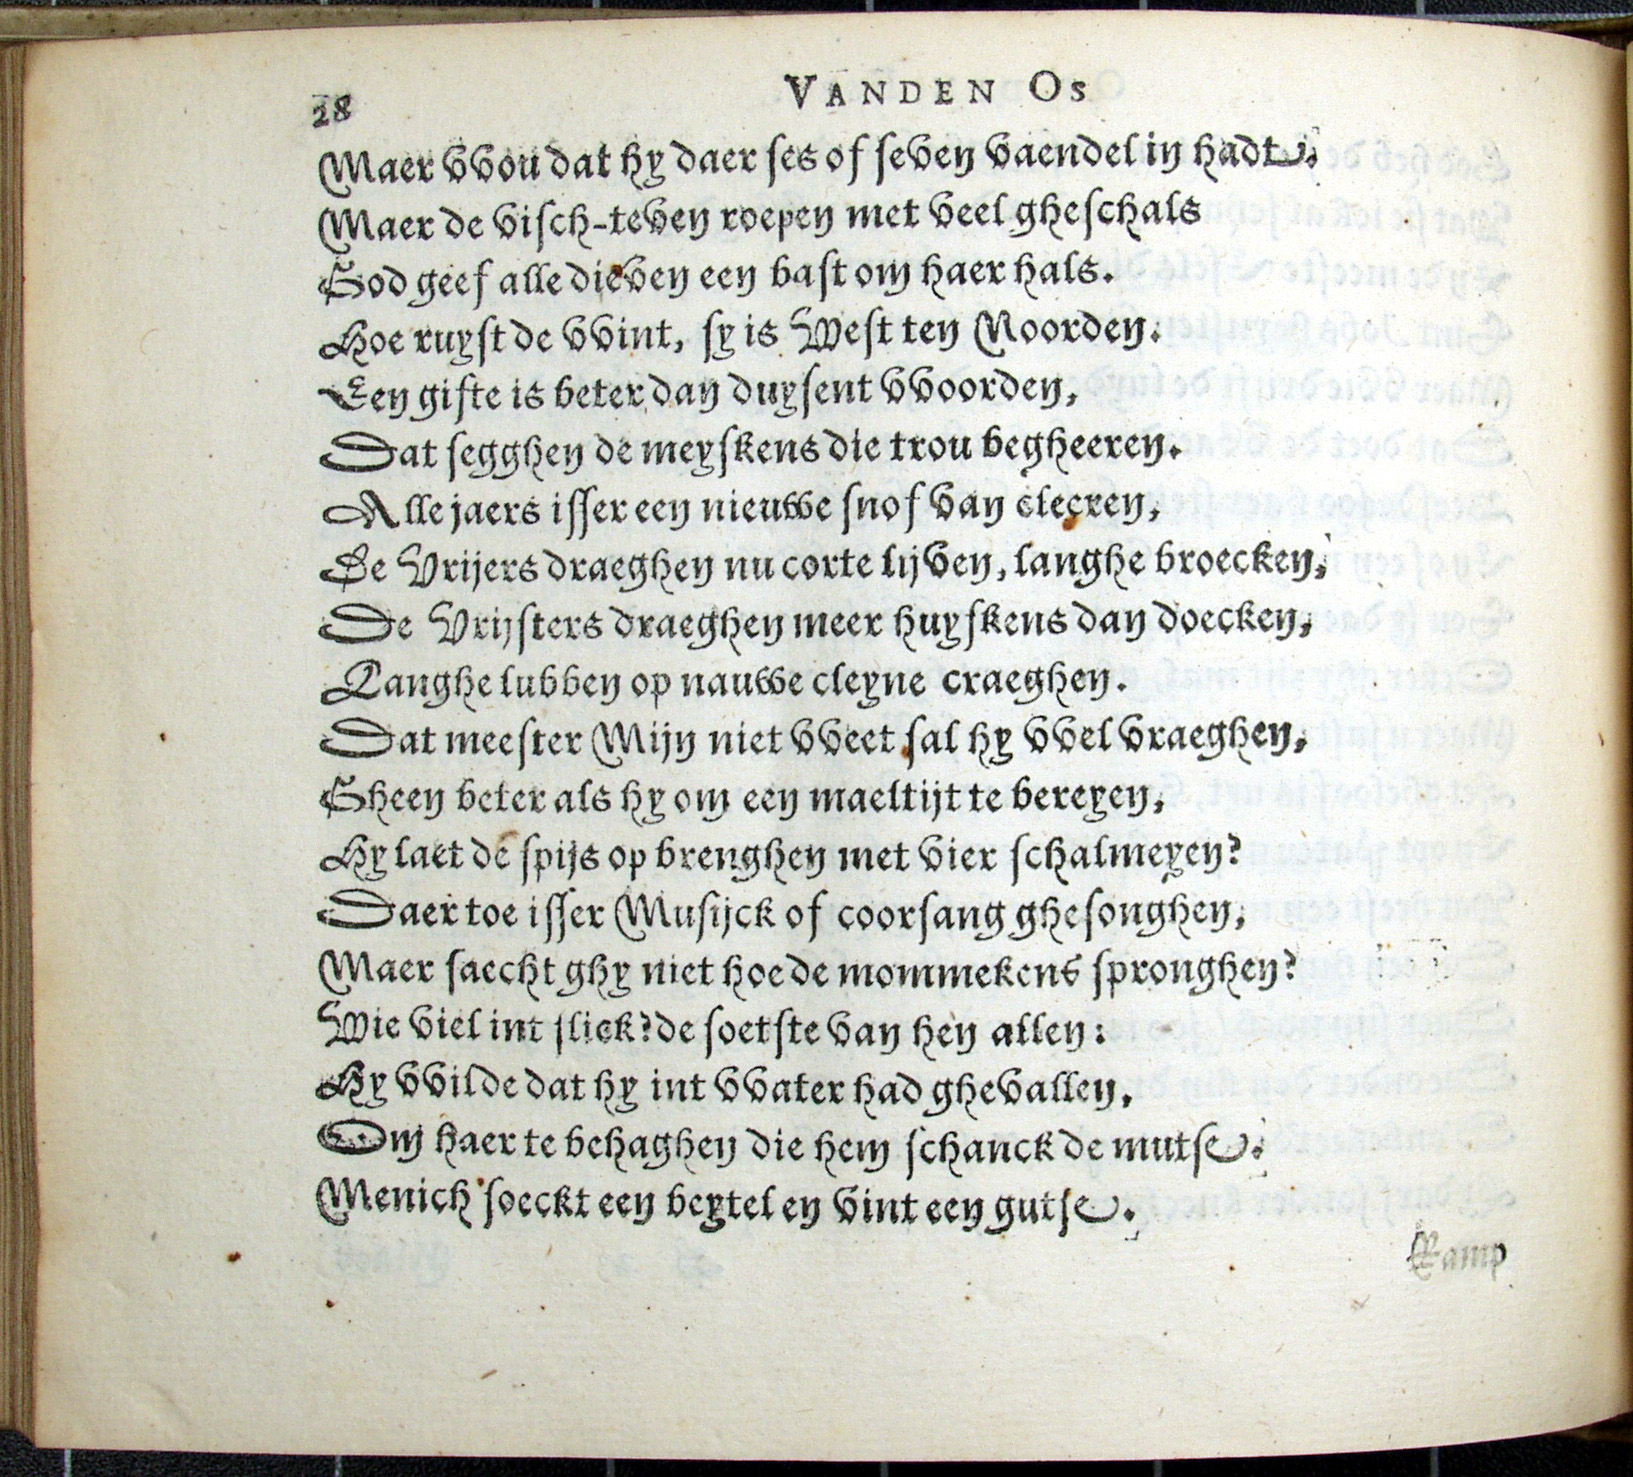 28
VANDEN OS
Maer vvou dat hy daer ses of seven vaendel in hadt.
Maer de visch-teven roepen met veel gheschals
God geef alle dieven een bast om haer hals.
Hoe ruyst de vvint, sy is West ten Noorden.
Een gifte is beter dan duysent vvoorden,
Dat segghen de meyskens die trou begheeren.
Alle jaers isser een nieuwe snof van cleeren,
De Vrijers draeghen nu corte lijven, langhe broecken,
De Vrijsters draeghen meer huyskens dan doecken,
Langhe lubben op nauwe cleyne craeghen.
Dat meester Mijn niet vveet sal hy vvel vraeghen,
Gheen beter als hy om een maeltijt te bereyen,
Hy laet de spijs op brenghen met vier schalmeyen?
Daer toe isser Musijck of coorsang ghesonghen,
Maer saecht ghy niet hoe de mommekens spronghen?
Wie viel int slick? de soetste van hen allen:
Hy vvilde dat hy int vvater had ghevallen,
Om haer te behaghen die hem schanck de mutse.
Menich soeckt een beytel en vint een gutse.
Ramp